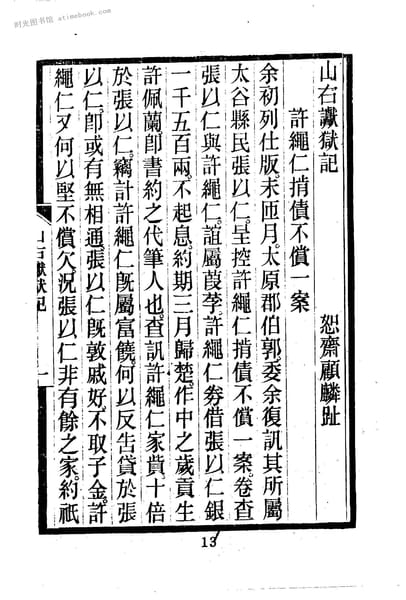 时光图书馆 atimebook.com
山右讞獄記
恕齋顧麟趾
許繩仁掯債不償一案
余初列仕版未匝月。太原郡伯郭。委余復訊其所屬
太谷縣民張以仁。呈控許繩仁掯債不償一案。卷查
張以仁與許繩仁。誼屬葭莩。許繩仁劵借張以仁銀
一千五百兩。不起息。約期三月歸楚。作中之歲貢生
許佩蘭。卽書約之代筆人也。查訊許繩仁家貲十倍
於張以仁。竊計許繩仁旣屬富饒。何以反吿貸於張
以仁。卽或有無相通。張以仁旣敦戚好。不取子金。許
繩仁又何以堅不償欠。況張以仁非有餘之家。約祇
山右讞獄記
一
13